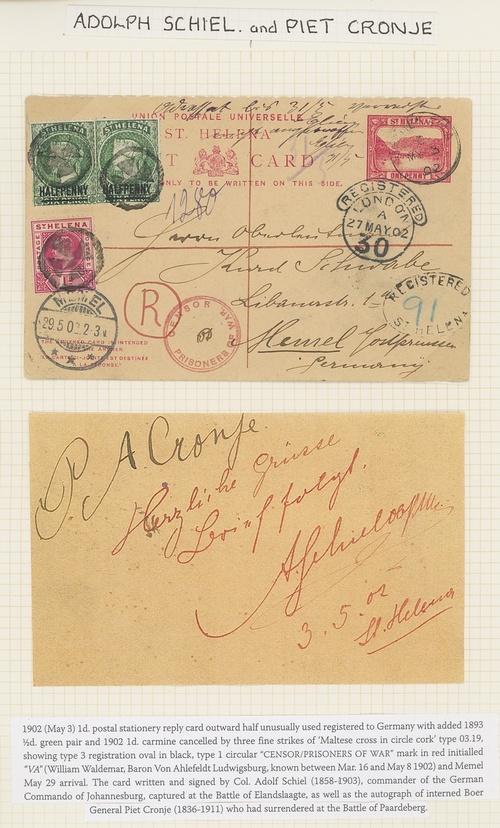 ADOLPH SCHIEL. and PIET CRONJE
UNION POSTALE UNIVERSELLE
ST. HELENA
POST CARD
ONLY TO BE WRITTEN ON THIS SIDE.
ST. HELENA
ONE PENNY
ST. HELENA ST. HELENA
HALFPENNY HALFPENNY
1280
REGISTERED
LONDON
A
27 MAY.02
30
Herrn Oberleut
ST HELENA
POSTAGE
Kurd Schwabe
REGISTERED
91
ST. HELENA
MEMEL
29.5.02.2-3N
Libauerstr.
R
CENSOR
PRISONERS OF WAR
Memel Ostpreussen
Germany
THE ANNEXED CARD IS INTENDED
FOR THE ANSWER
LA CARTE CI-JOINTE EST DESTINÉE
À LA RÉPONSE
P. A Cronje.
Herzliche Grüsse
Brief folgt.
A. Schiel
3. 5. 02
St. Helena
1902 (May 3) 1d. postal stationery reply card outward half unusually used registered to Germany with added 1893
½d. green pair and 1902 1d. carmine cancelled by three fine strikes of 'Maltese cross in circle cork' type 03.19,
showing type 3 registration oval in black, type 1 circular "CENSOR/PRISONERS OF WAR" mark in red initialled
"VA" (William Waldemar, Baron Von Ahlefeldt Ludwigsburg, known between Mar. 16 and May 8 1902) and Memel
May 29 arrival. The card written and signed by Col. Adolf Schiel (1858-1903), commander of the German
Commando of Johannesburg, captured at the Battle of Elandslaagte, as well as the autograph of interned Boer
General Piet Cronje (1836-1911) who had surrendered at the Battle of Paardeberg.